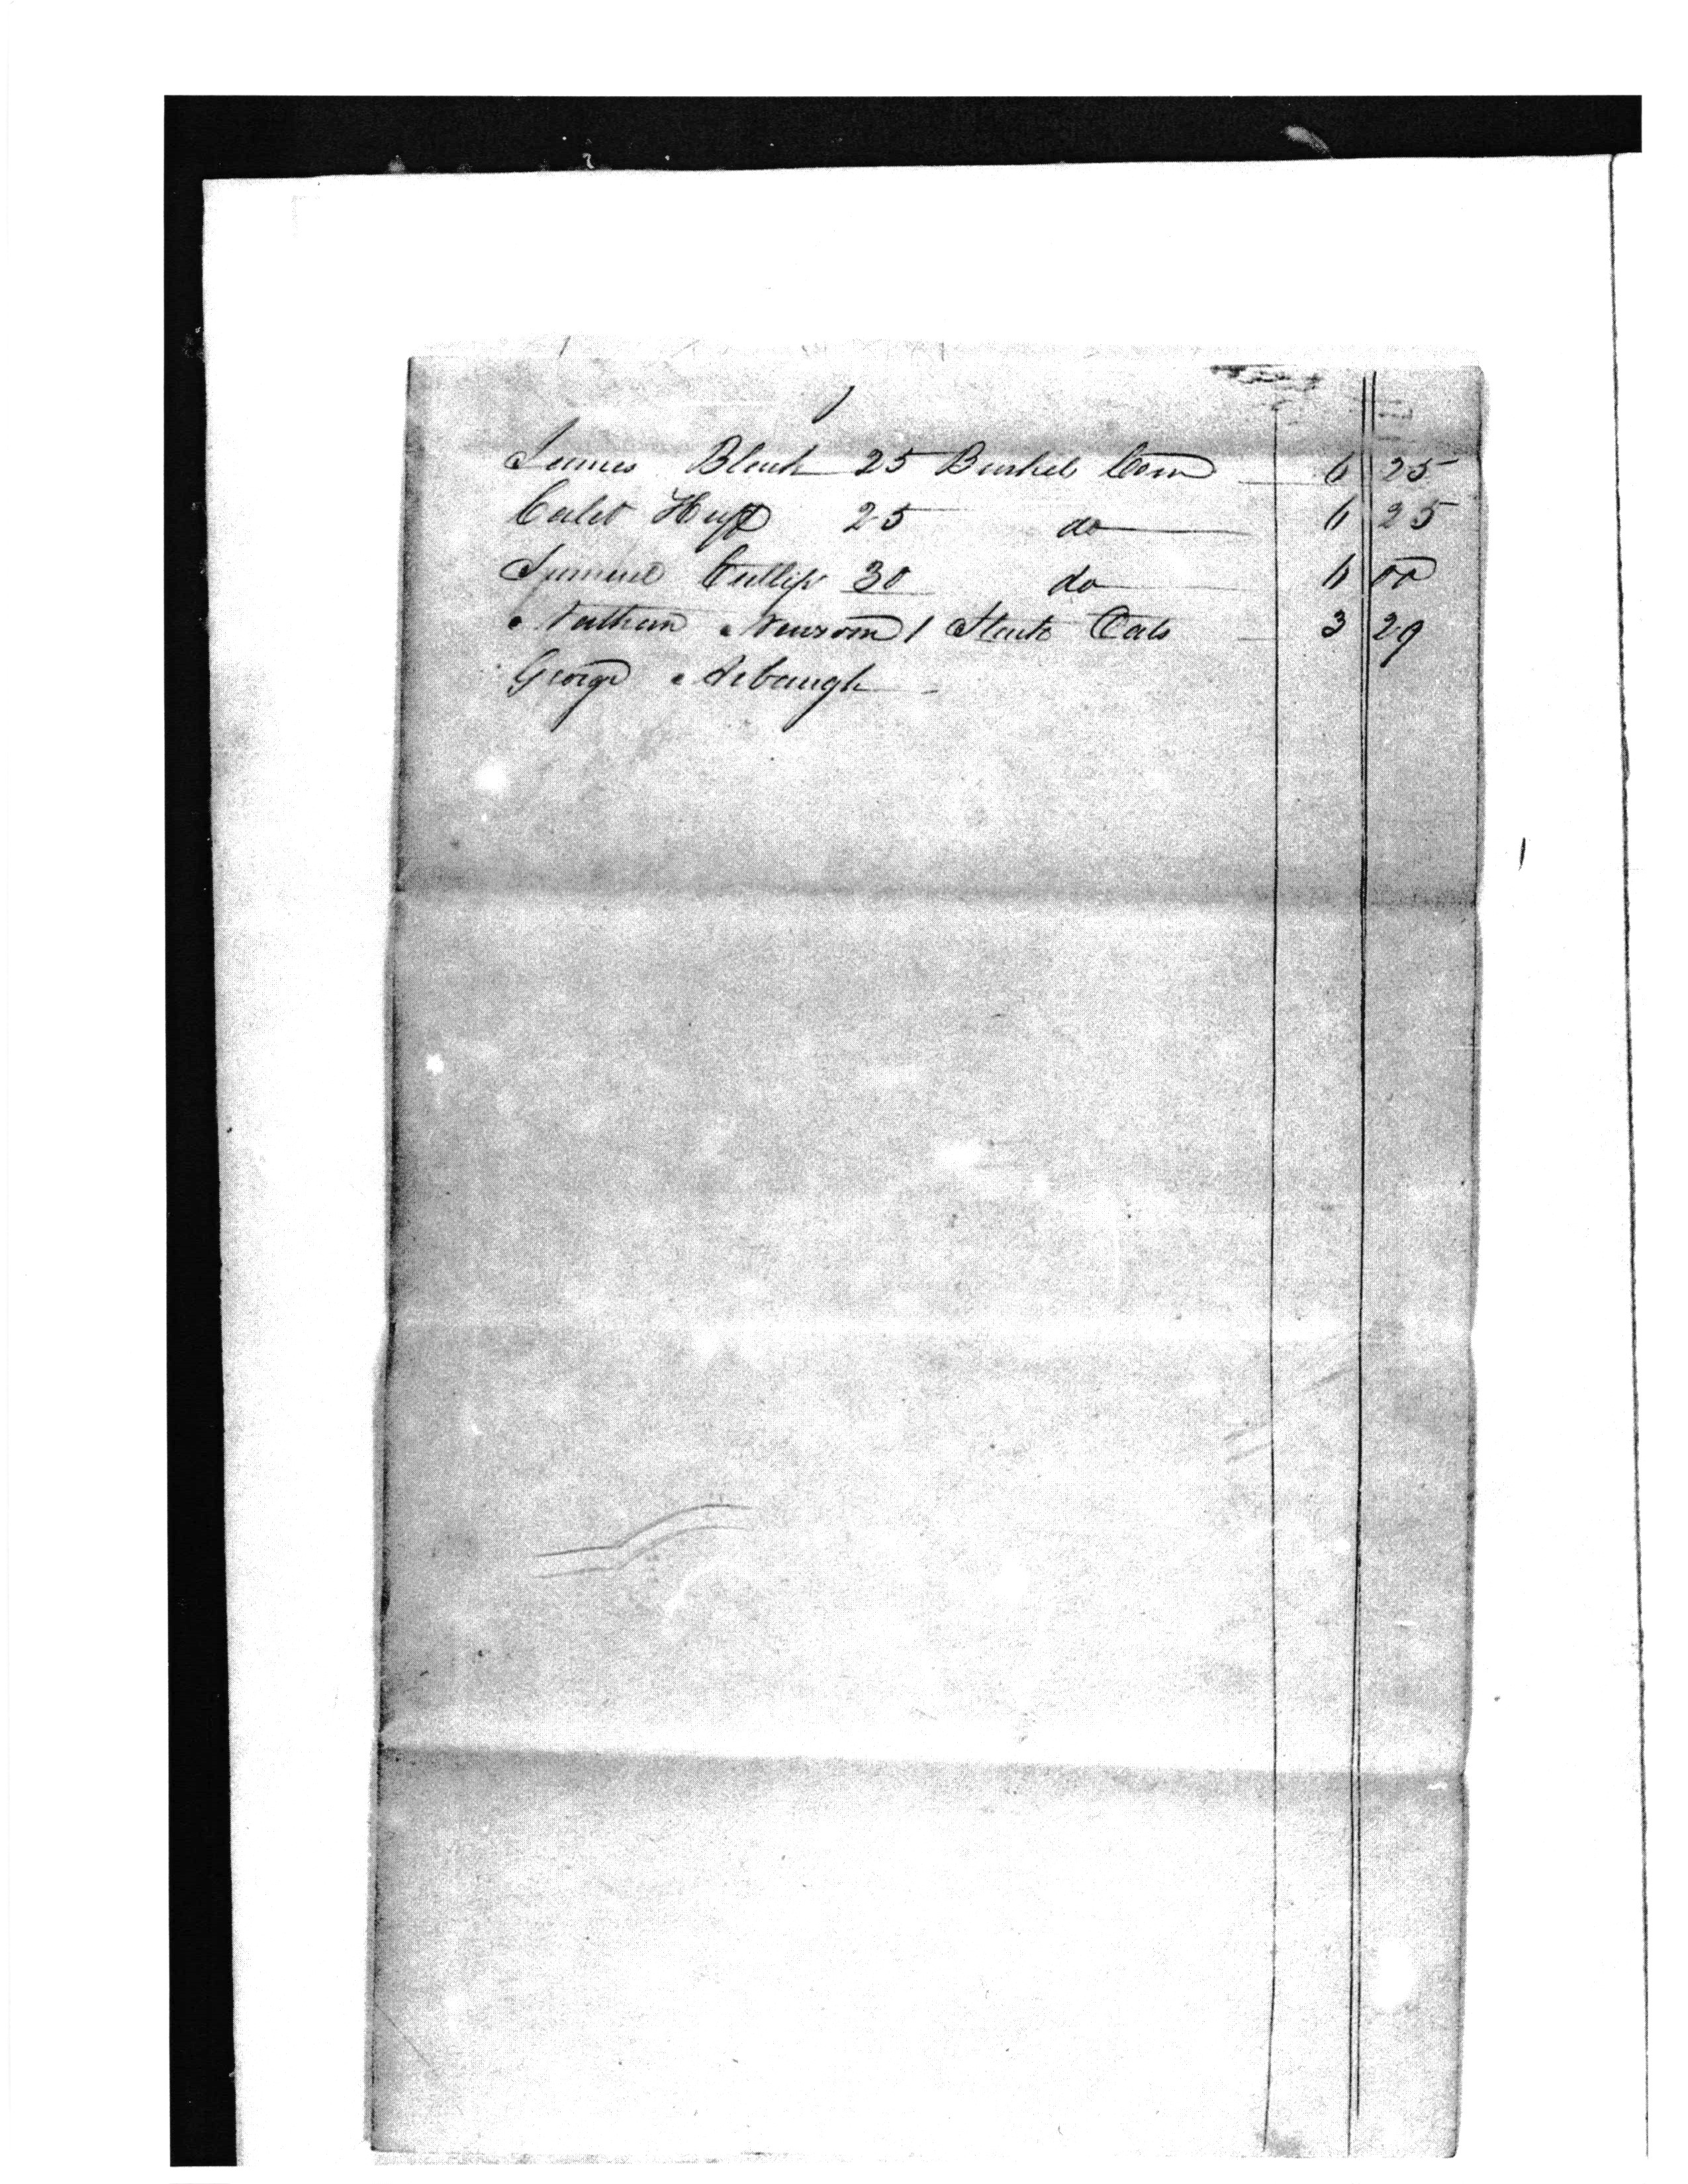 James Black 25 Bushel Corn 6 25
Caleb Huff 25 do 6 25
Samuel Cullip 30 do 6 00
Nathan Newsom 1 Stack Oats 3 29
George Arbaugh